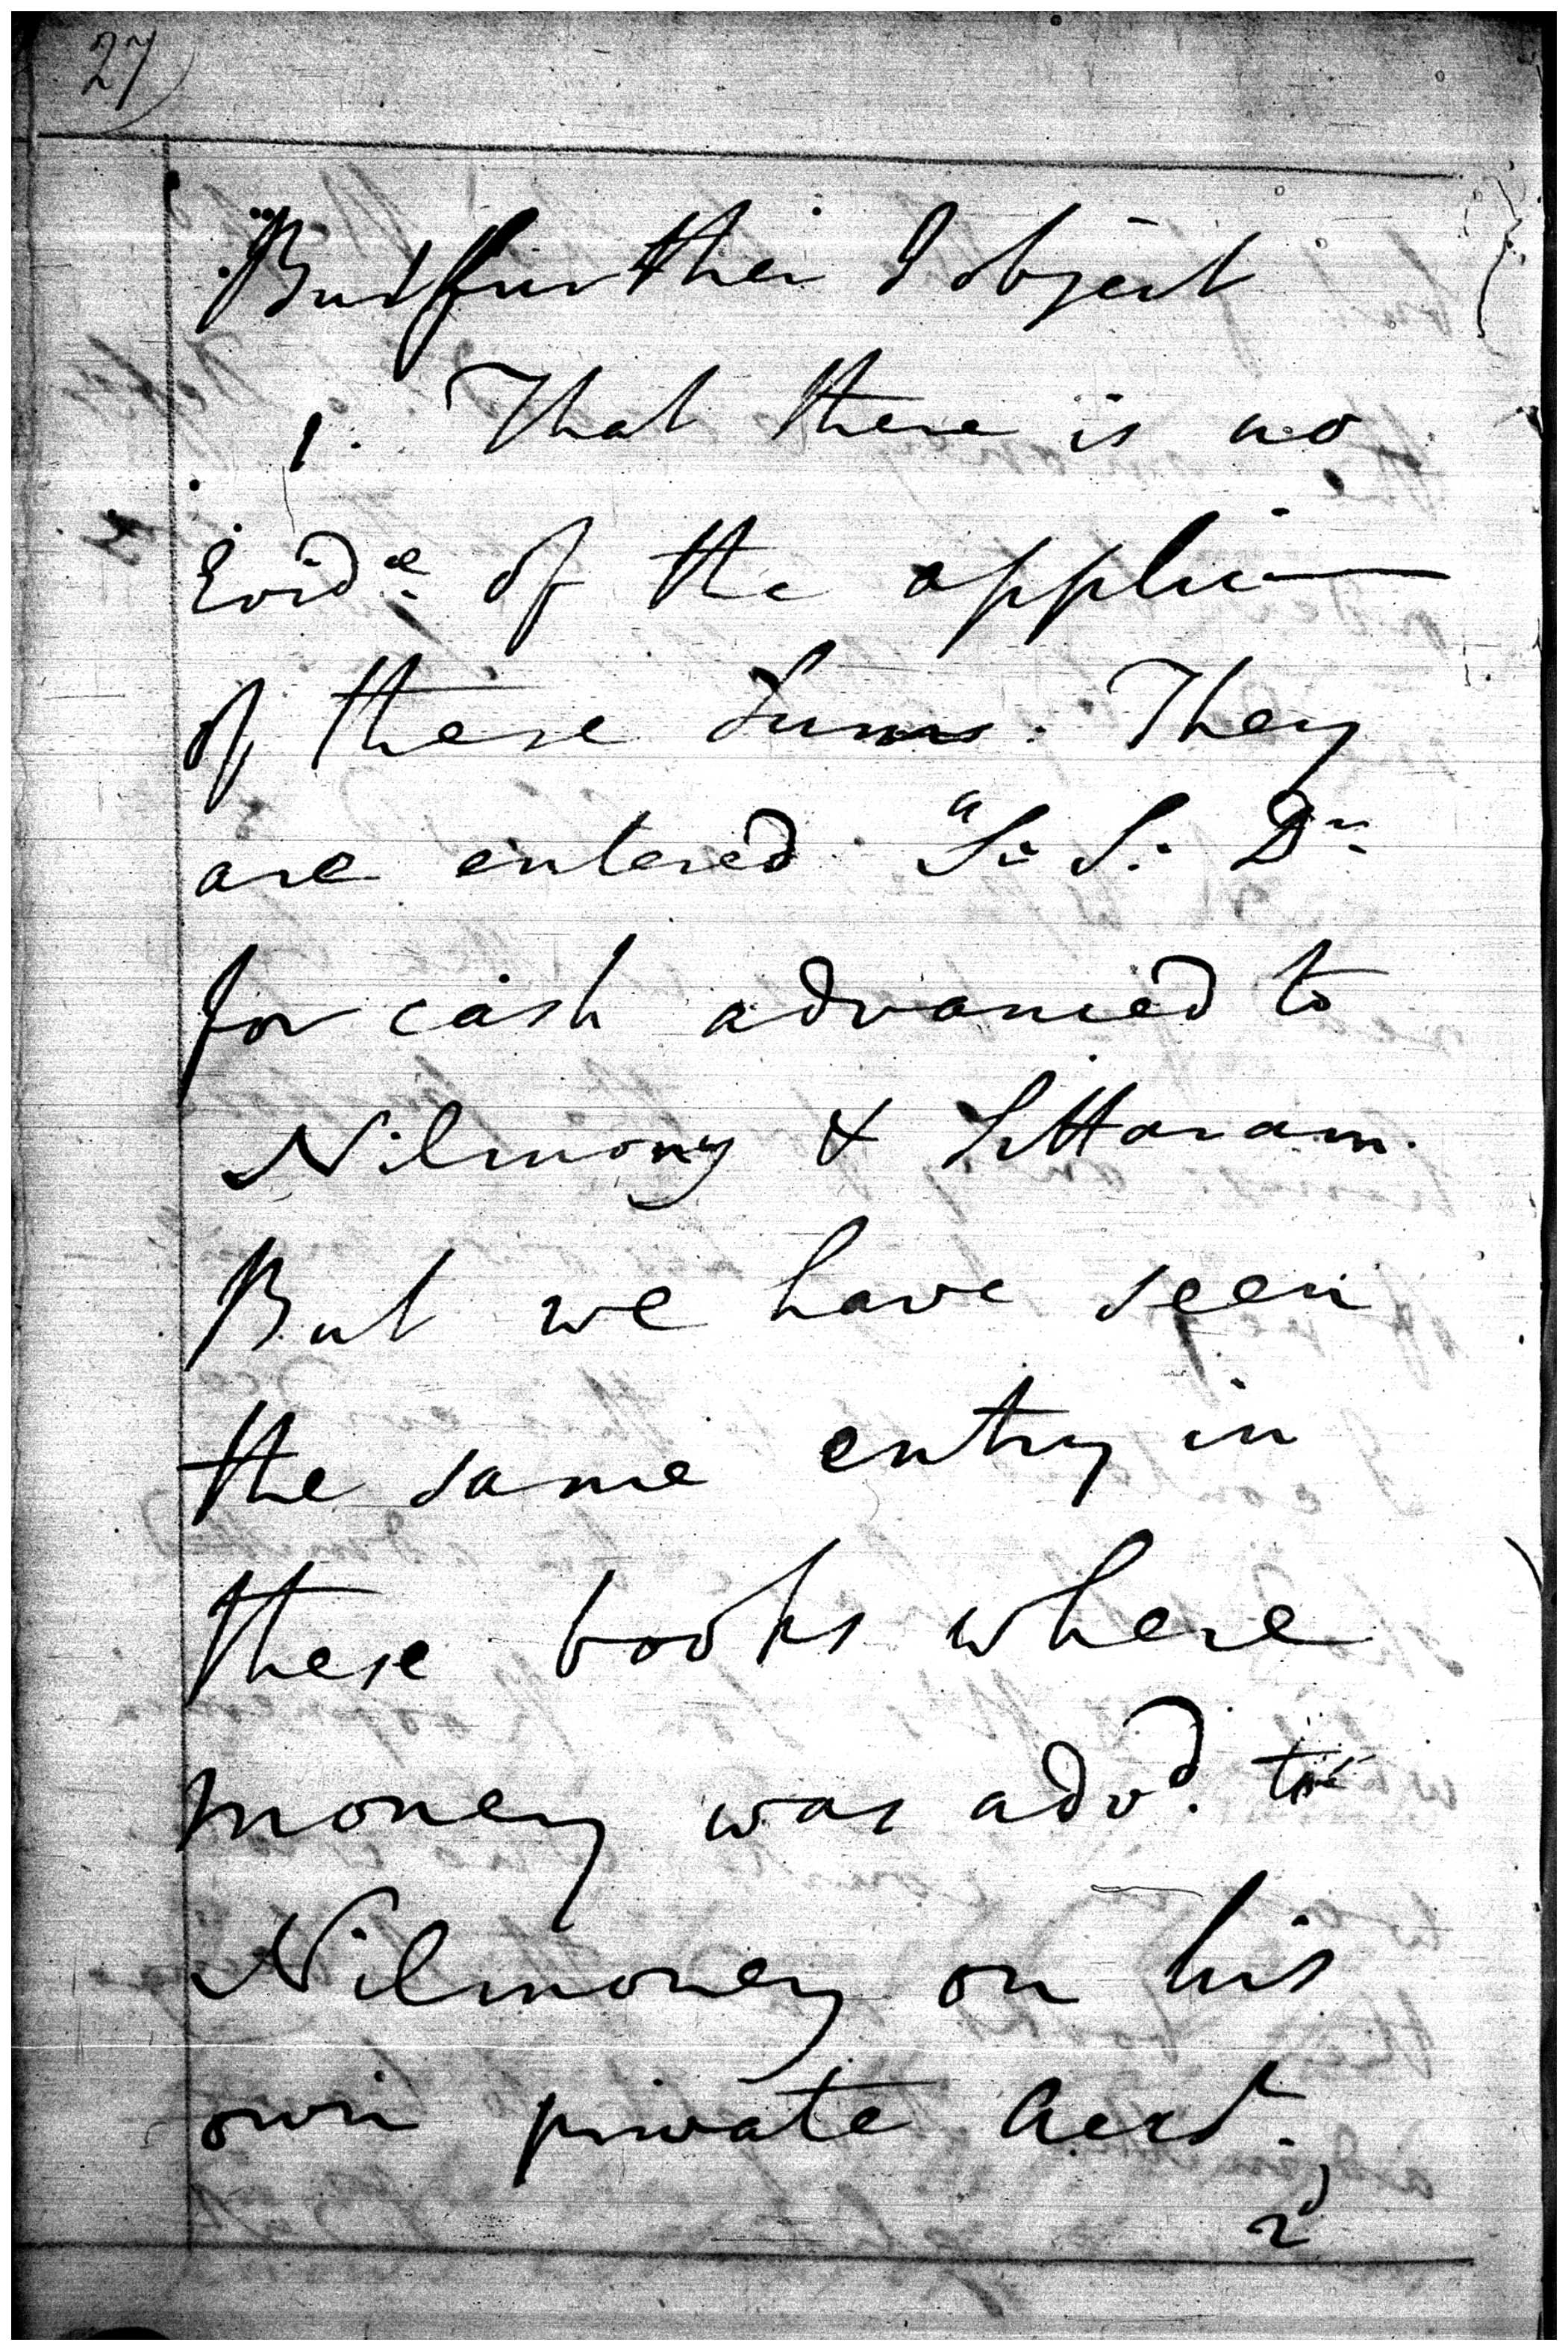 27
But further I object
1. That there is no
Evidce. of the applicn
of these Sums. They
are entered "S. S. Dr.
for cash advanced to
Nilmony & Sittaram.
But we have seen
the same entry in
these books where
money was advd. to
Nilmoney on his
own private Acct.
2d